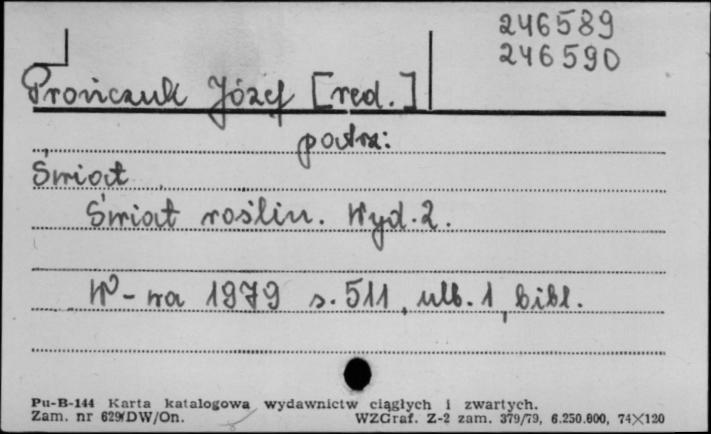 246589
246590
Prończuk Józef [red.]
patrz:
Świat
Świat roślin. Wyd. 2.
W-wa 1979 s. 511, ulb. 1, bibl.
Pu-B-144 Karta katalogowa wydawnictw ciągłych i zwartych.
Zam. nr 629/DW/On. WZGraf. Z-2 zam. 379/79, 6.250.000, 74×120